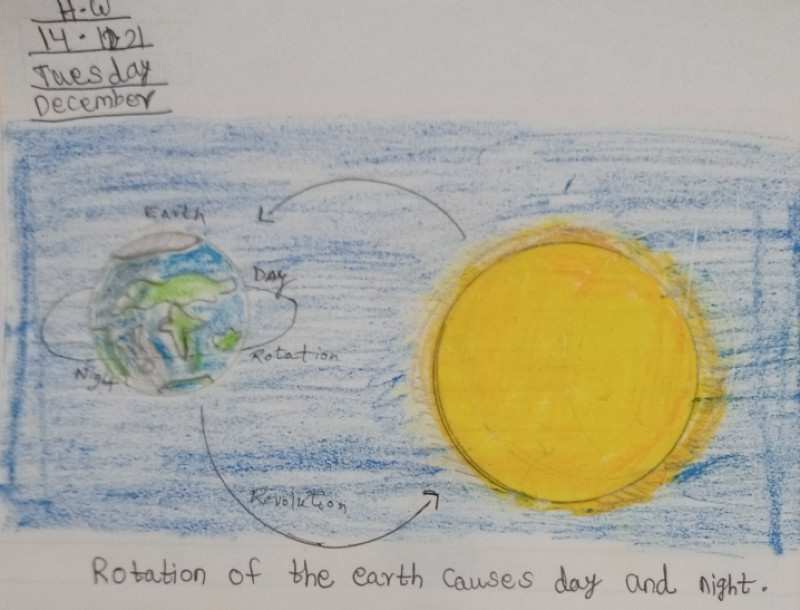 H.W
14.12.21
Tuesday
December
Earth
Day
Rotation
Night
Revolution
Rotation of the earth causes day and night.